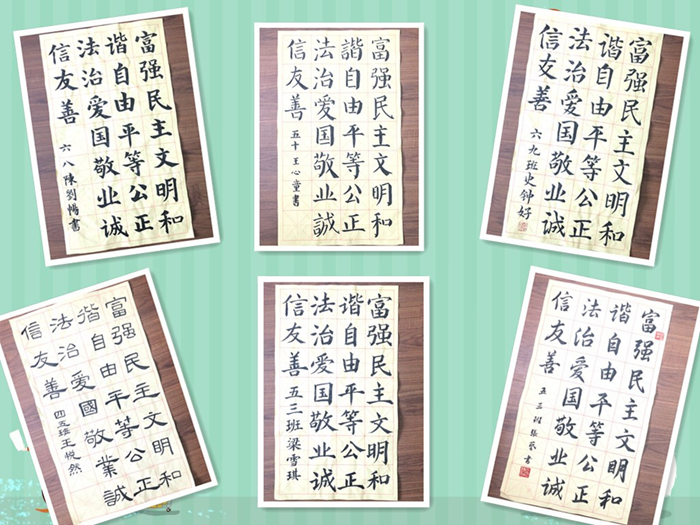 富强民主文明和
谐自由平等公正
法治爱国敬业诚
信友善 六八陳劉暢書
富强民主文明和
諧自由平等公正
法治爱国敬业誠
信友善 五十王心童書
富强民主文明和
谐自由平等公正
法治爱国敬业诚
信友善 六九班史钟好
富强民主文明和
谐自由平等公正
法治爱國敬業誠
信友善 四五班王悦然
富强民主文明和
谐自由平等公正
法治爱国敬业诚
信友善 五三班梁雪琪
富强民主文明和
谐自由平等公正
法治爱国敬业诚
信友善 五三班